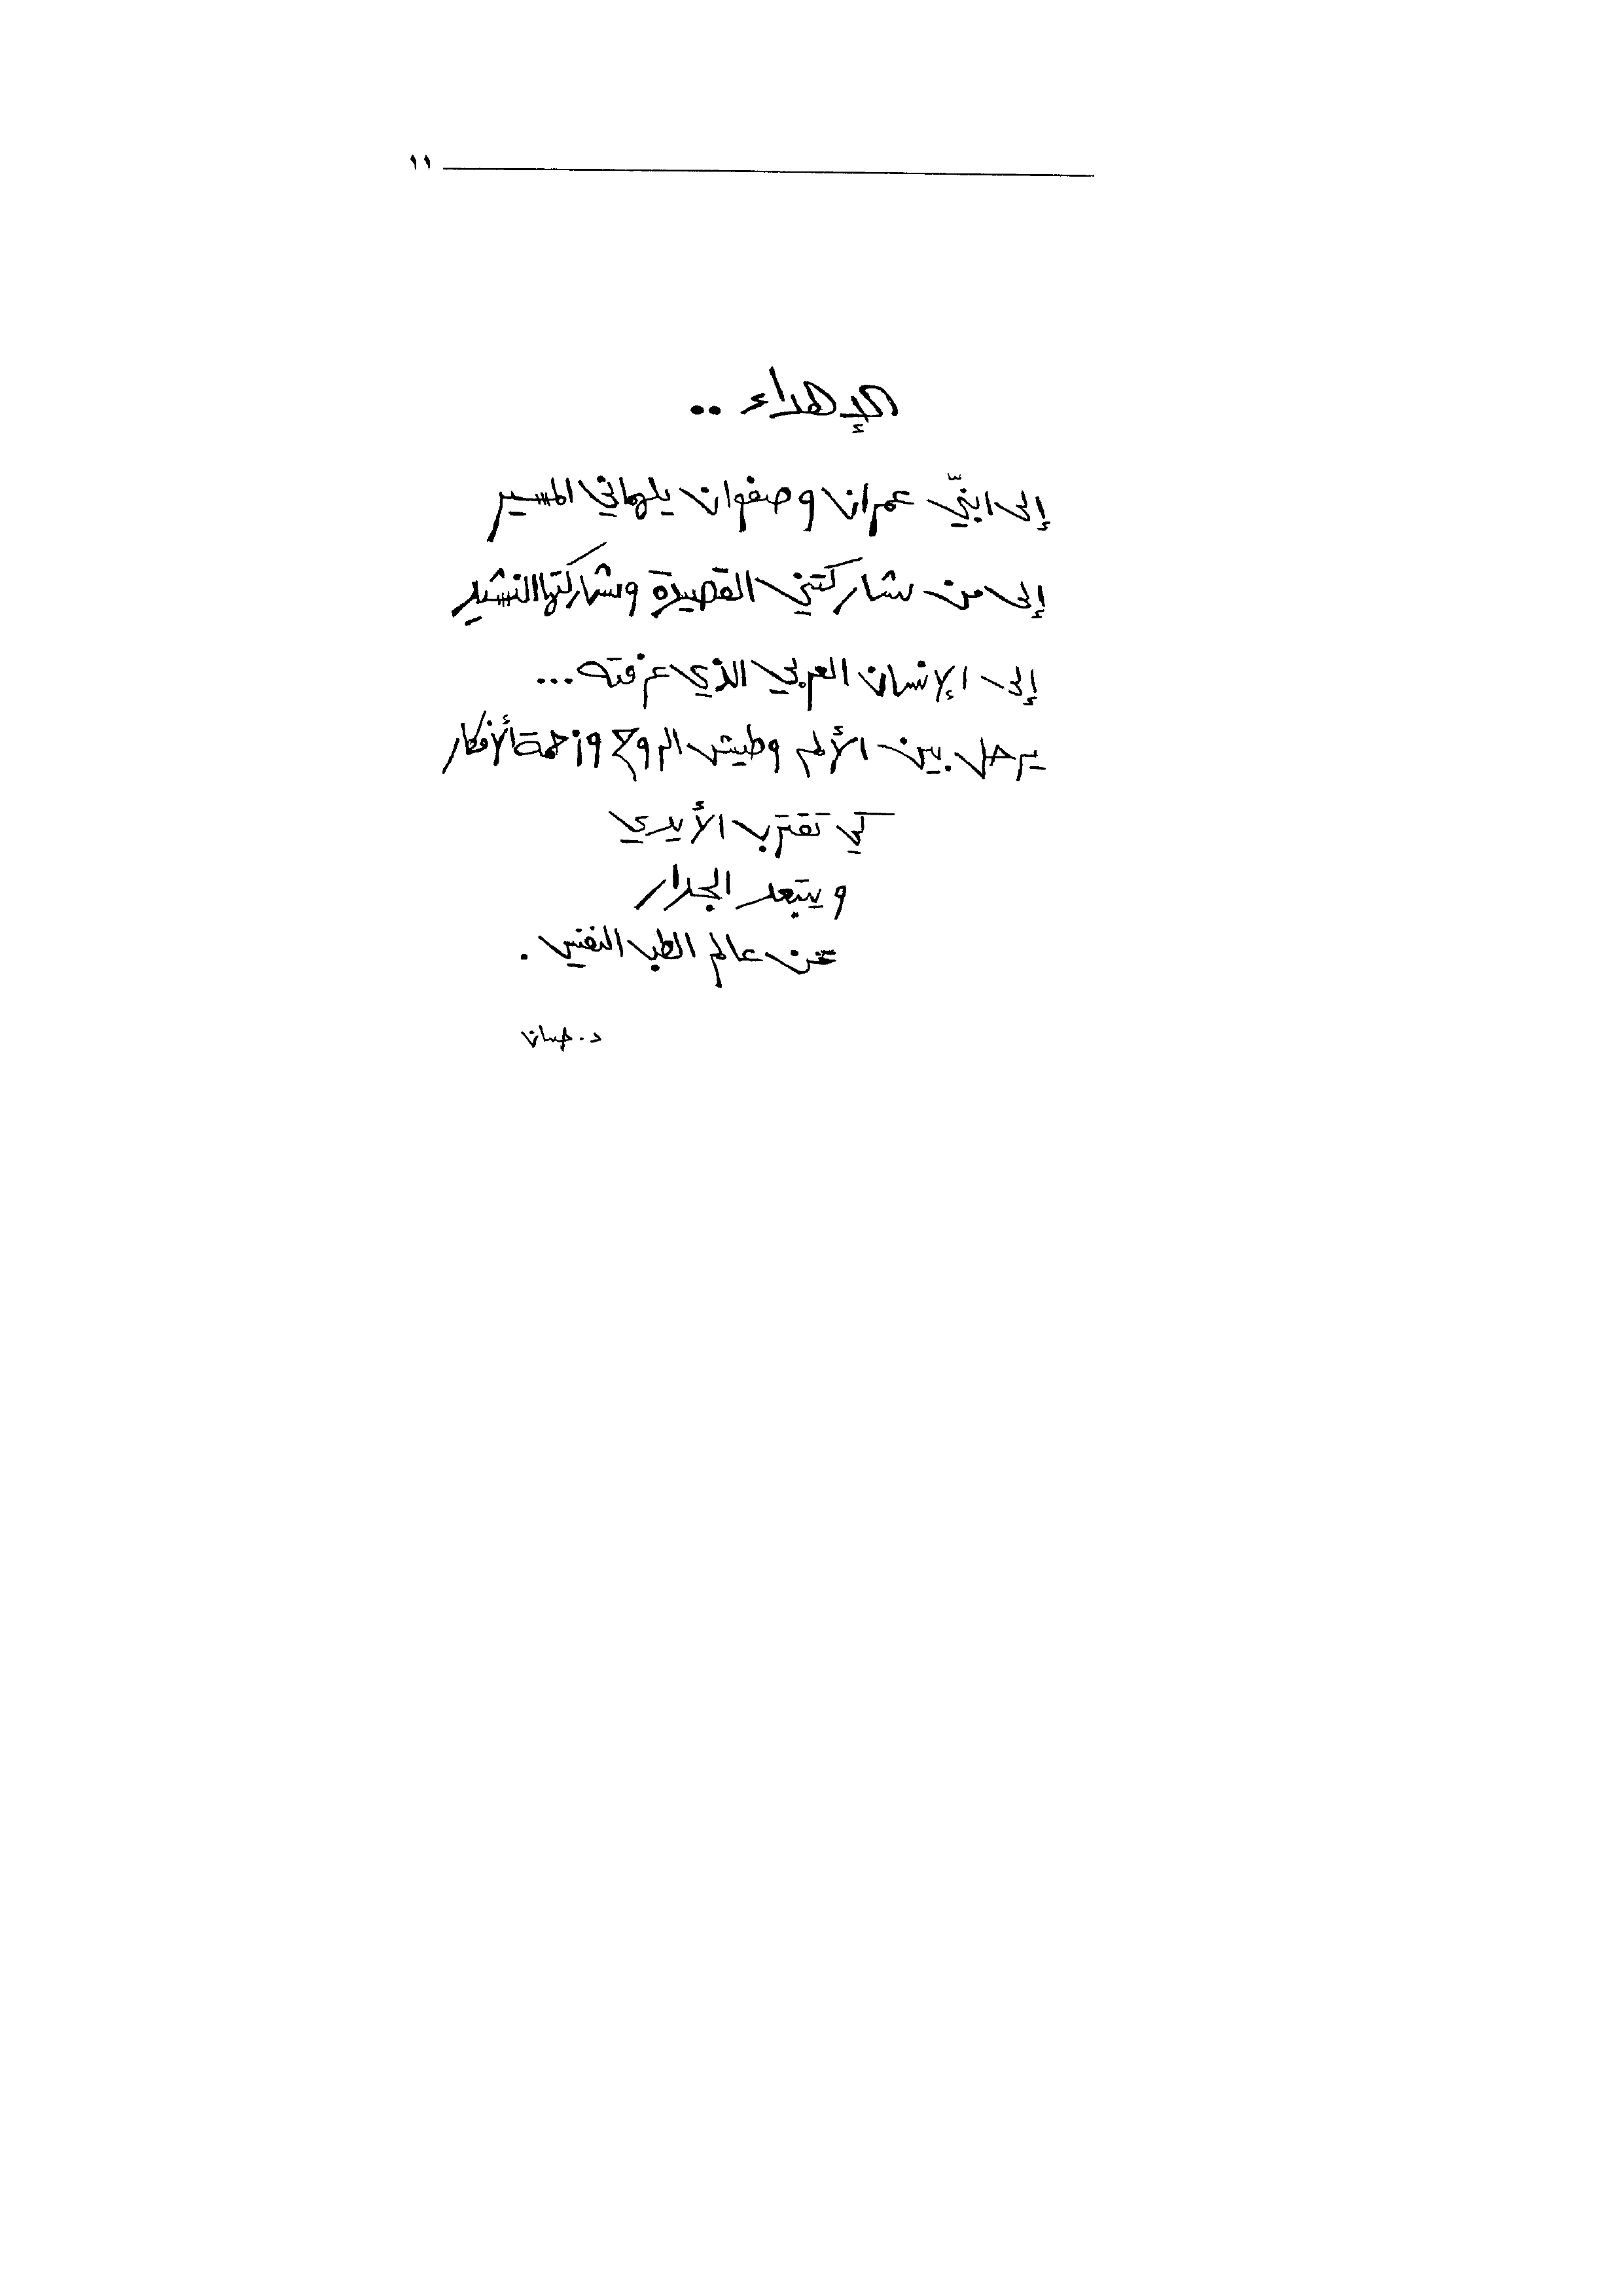 ١١
الإهداء ..
إلى ابنيّ عمران وصفوان يلهماني المسير
إلى من شاركتني القصيدة وشاركتها النشيد
إلى الإنسان العربي الذي عرفته...
يرحل بين الألم وطيش الروح وزحمة الأفكار
كي تقترب الأيدي
ويبتعد الجدار
عن عالم الطب النفسي .
د. حسان